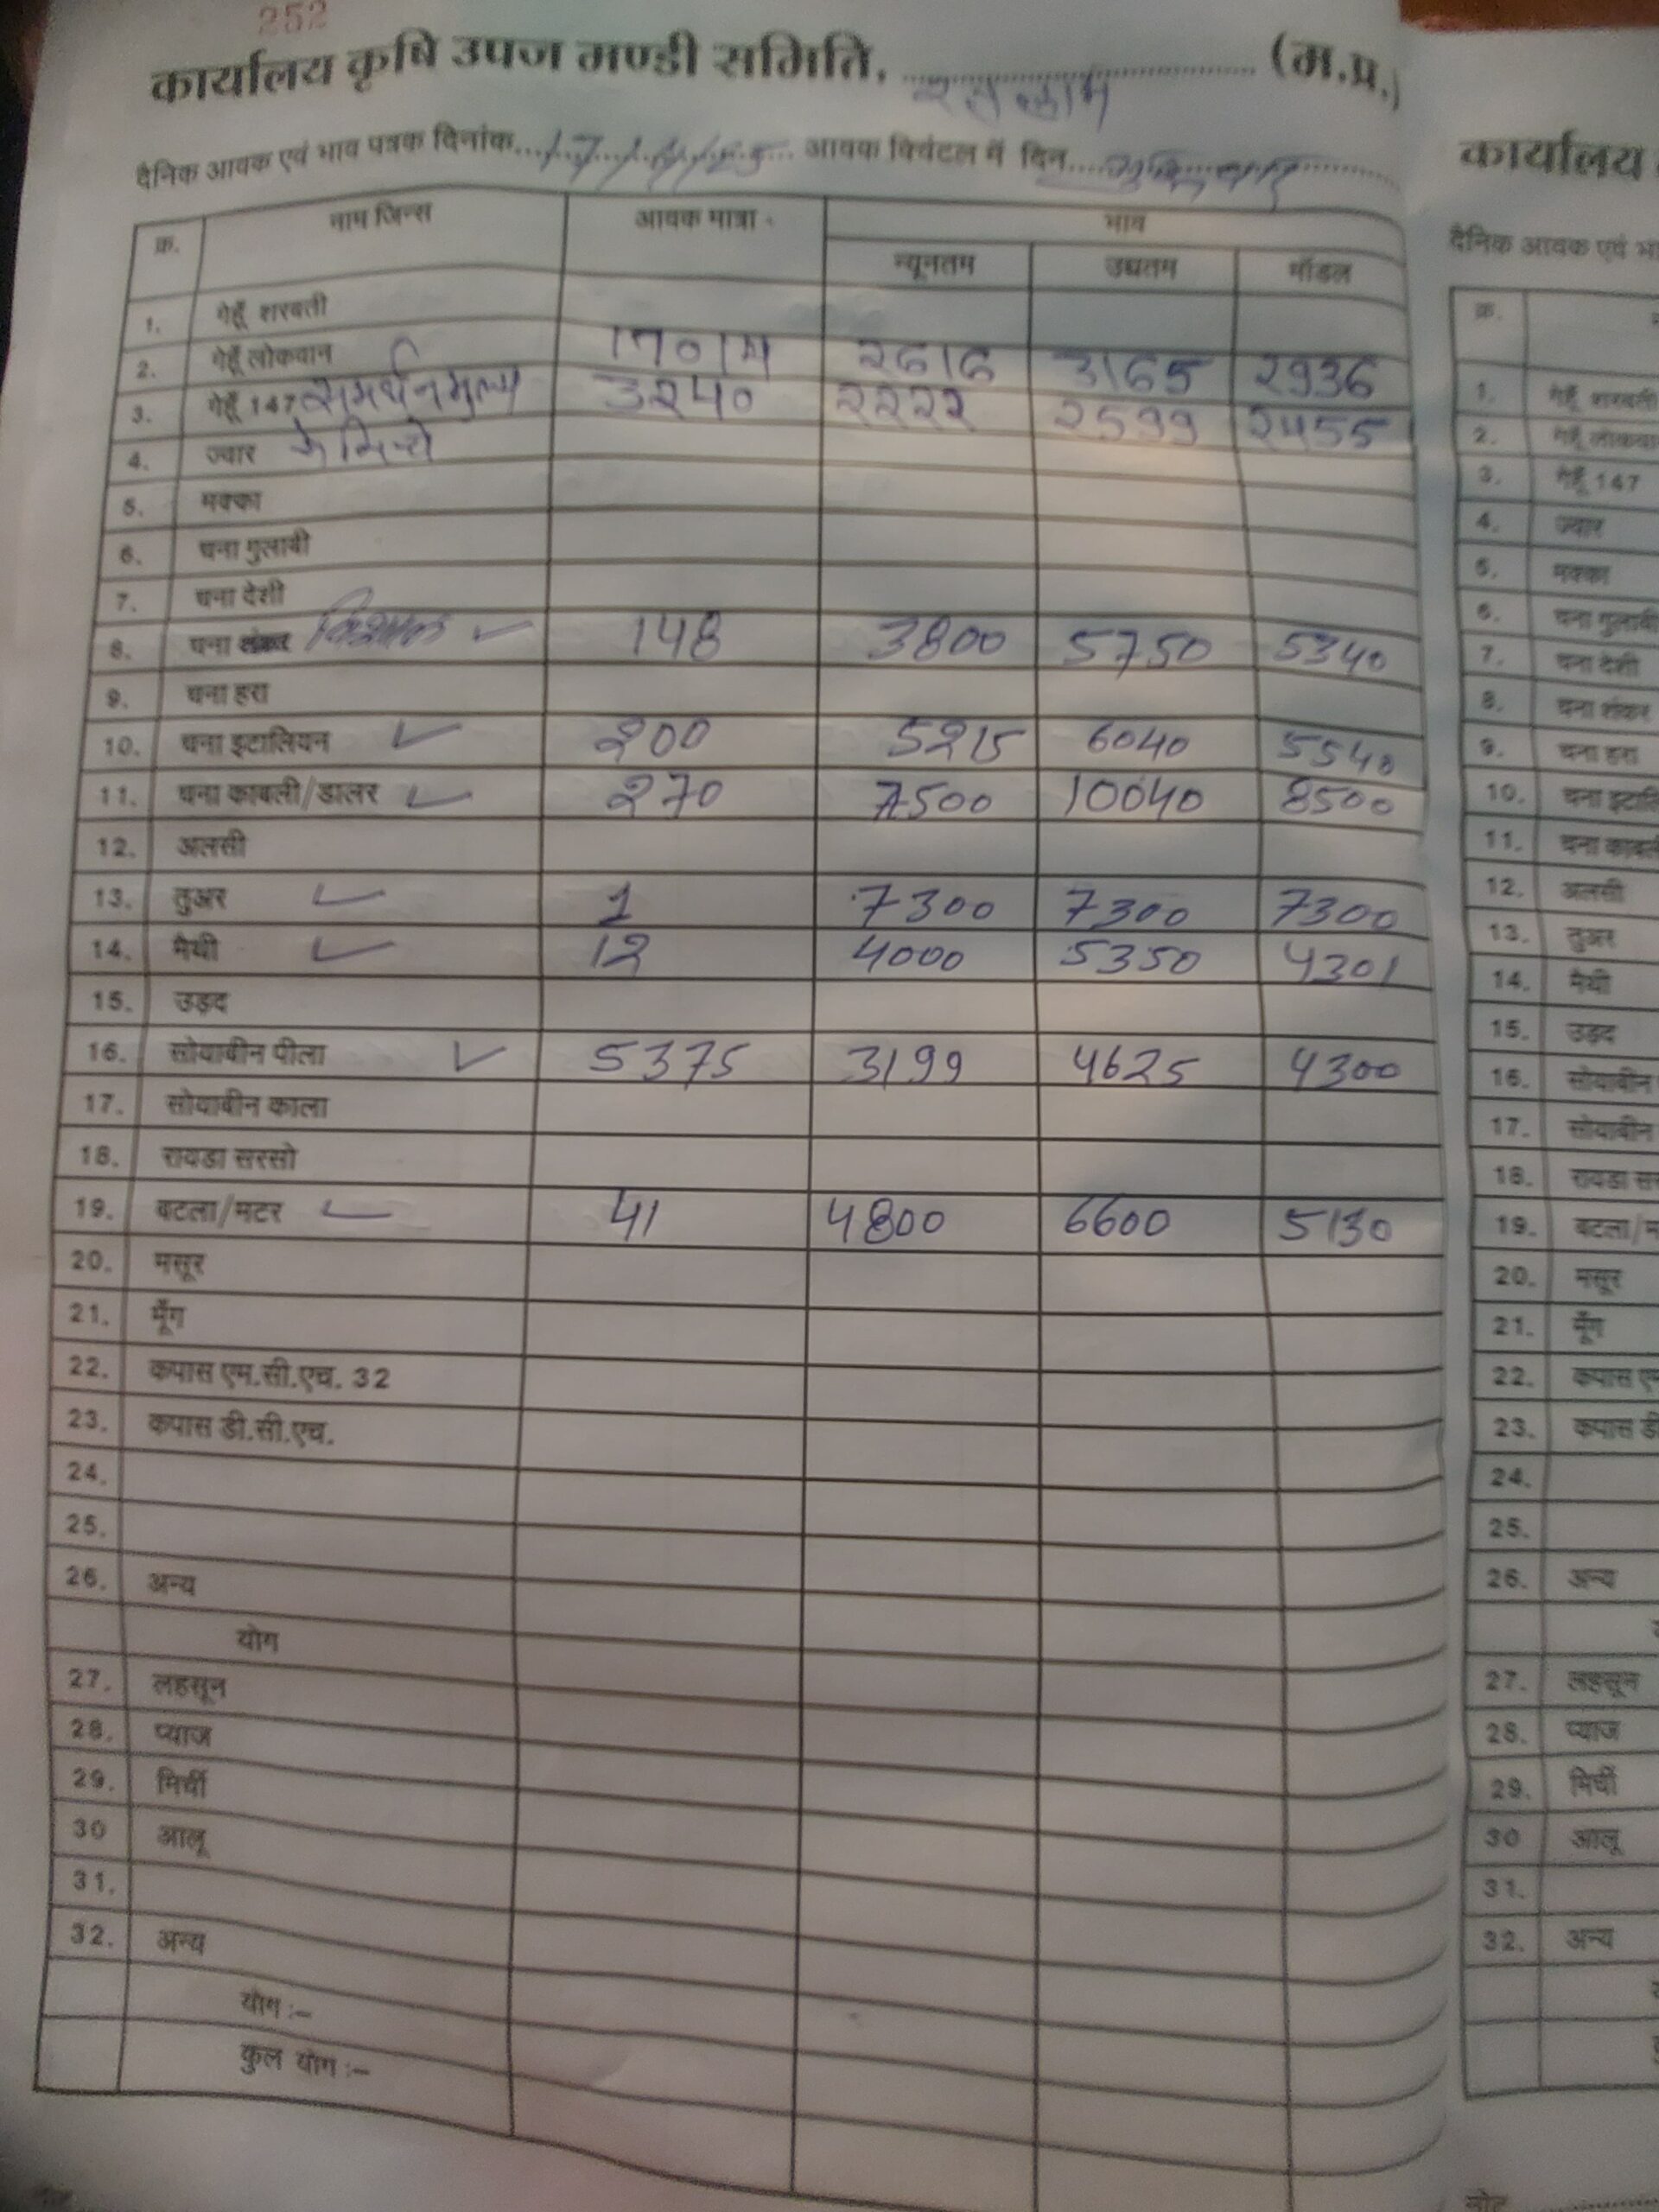 252
कार्यालय कृषि उपज मण्डी समिति, रतलाम (म.प्र.)
दैनिक आवक एवं भाव पत्रक दिनांक...17/4/25... आवक क्विंटल में दिन
क्र. नाम जिन्स आवक मात्रा भाव
न्यूनतम उच्चतम मॉडल
1. गेहूँ शरबती
2. गेहूँ लोकवान 2616 3165 2936
3. गेहूँ 147 समर्थन मुल्य 3240 2222 2599 2455
4. ज्वार
5. मक्का
6. चना गुलाबी
7. चना देशी
8. चना विशाल ✓ 148 3800 5750 5340
9. चना हरा
10. चना इटालियन ✓ 200 5215 6040 5540
11. चना काबली/डालर ✓ 270 7500 10040 8500
12. अलसी
13. तुअर ✓ 1 7300 7300 7300
14. मैथी ✓ 12 4000 5350 4301
15. उड़द
16. सोयाबीन पीला ✓ 5375 3199 4625 4300
17. सोयाबीन काला
18. रायडा सरसो
19. बटला/मटर ✓ 41 4800 6600 5130
20. मसूर
21. मूँग
22. कपास एम.सी.एच. 32
23. कपास डी.सी.एच.
24.
25.
26. अन्य
योग
27. लहसून
28. प्याज
29. मिर्ची
30 आलू
31.
32. अन्य
योग :–
कुल योग :–
कार्यालय
दैनिक आवक एवं
क्र.
1. गेहूँ शरबती
2. गेहूँ
3. गेहूँ 147
4. ज्वार
5. मक्का
6. चना
7. चना देशी
8. चना शंकर
9. चना हरा
10. चना
11. चना
12. अलसी
13. तुअर
14. मैथी
15. उड़द
16. सोयाबीन
17. सोयाबीन
18. रायडा
19. बटला
20. मसूर
21. मूँग
22. कपास
23. कपास
24.
25.
26. अन्य
27. लहसून
28. प्याज
29. मिर्ची
30 आलू
31.
32. अन्य
नोट